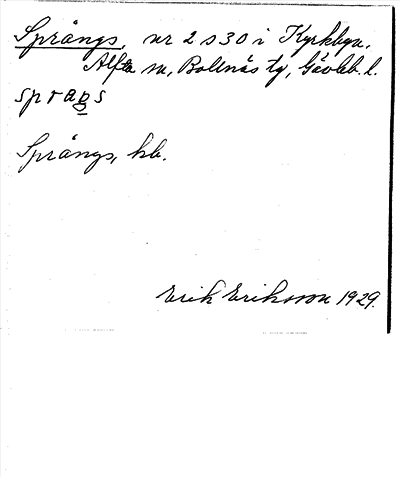 Språngs, nr 2 o 30 i Kyrkbyn,
Alfta sn, Bollnäs tg, Gävleb. l.
spraŋs
Språngs, hb.
Erik Eriksson 1929.